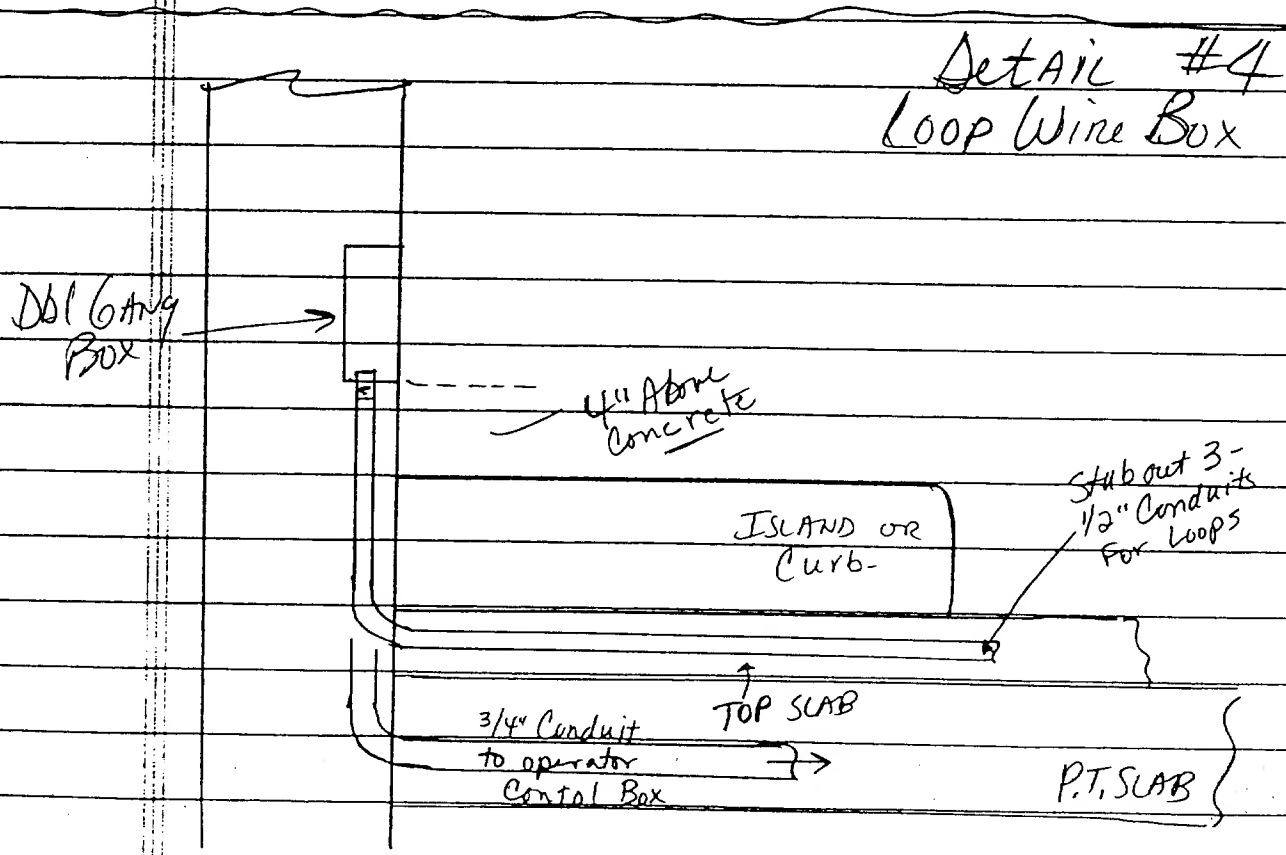 Detail #4
Loop Wire Box
Dbl Gang
Box
4" Above
Concrete
Stub out 3-
1/2" Conduits
For Loops
ISLAND OR
Curb-
TOP SLAB
3/4" Conduit
to operator
Contol Box
P.T. SLAB